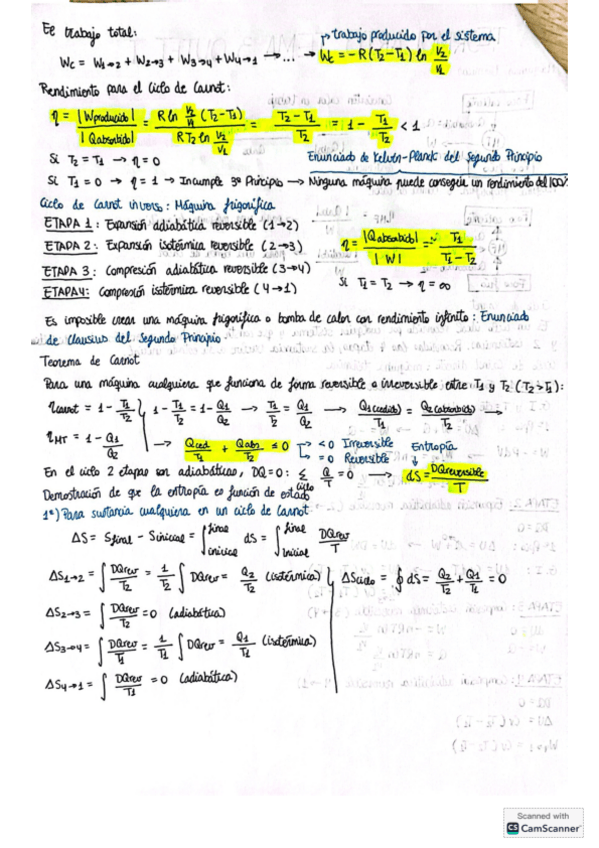 El trabajo total:
→ trabajo producido por el sistema
Wc = W1→2 + W2→3 + W3→4 + W4→1 → ... → Wc = -R(T2-T1) ln V2/V1
Rendimiento para el Ciclo de Carnot:
η = |Wproducido| / |Qabsorbido| = R ln V2/V1 (T2-T1) / RT2 ln V2/V1 = T2-T1 / T2 = 1 - T1/T2 < 1
Si T2 = T1 → η = 0
Enunciado de Kelvin-Planck del Segundo Principio
Si T1 = 0 → η = 1 → Incumple 3º Principio → Ninguna máquina puede conseguir un rendimiento del 100%
Ciclo de Carnot inverso: Máquina frigorífica
ETAPA 1: Expansión adiabática reversible (1→2)
ETAPA 2: Expansión isotérmica reversible (2→3)
η = |Qabsorbido| / |W| = ... T1 / T1-T2
ETAPA 3: Compresión adiabática reversible (3→4)
ETAPA4: Compresión isotérmica reversible (4→1)
Si T1 = T2 → η = ∞
Es imposible crear una máquina frigorífica o bomba de calor con rendimiento infinito: Enunciado
de Clausius del Segundo Principio
Teorema de Carnot
Para una máquina cualquiera que funciona de forma reversible o irreversible entre T1 y T2 (T2>T1):
ηcarnot = 1 - T1/T2
1 - T1/T2 = 1 - Q1/Q2 → T1/T2 = Q1/Q2 → Q1(cedido)/T1 = Q2(absorbido)/T2 →
ηMT = 1 - Q1/Q2
→ Qced/T1 + Qabs/T2 ≤ 0
→ <0 Irreversible
→ =0 Reversible
Entropía
En el ciclo 2 etapas son adiabáticas, DQ=0: Σciclo Q/T = 0 → dS = DQreversible/T
Demostración de que la entropía es función de estado
1º) Para sustancia cualquiera en un ciclo de Carnot
ΔS = Sfinal - Sinicial = ∫inicial final dS = ∫inicial final DQrev/T
ΔS1→2 = ∫ DQrev/T2 = 1/T2 ∫ DQrev = Q2/T2 (isotérmica)
ΔSciclo = ∮ dS = Q2/T2 + Q1/T1 = 0
ΔS2→3 = ∫ DQrev/T2 = 0 (adiabática)
ΔS3→4 = ∫ DQrev/T1 = 1/T1 ∫ DQrev = Q1/T1 (isotérmica)
ΔS4→1 = ∫ DQrev/T1 = 0 (adiabática)
Scanned with
CS CamScanner